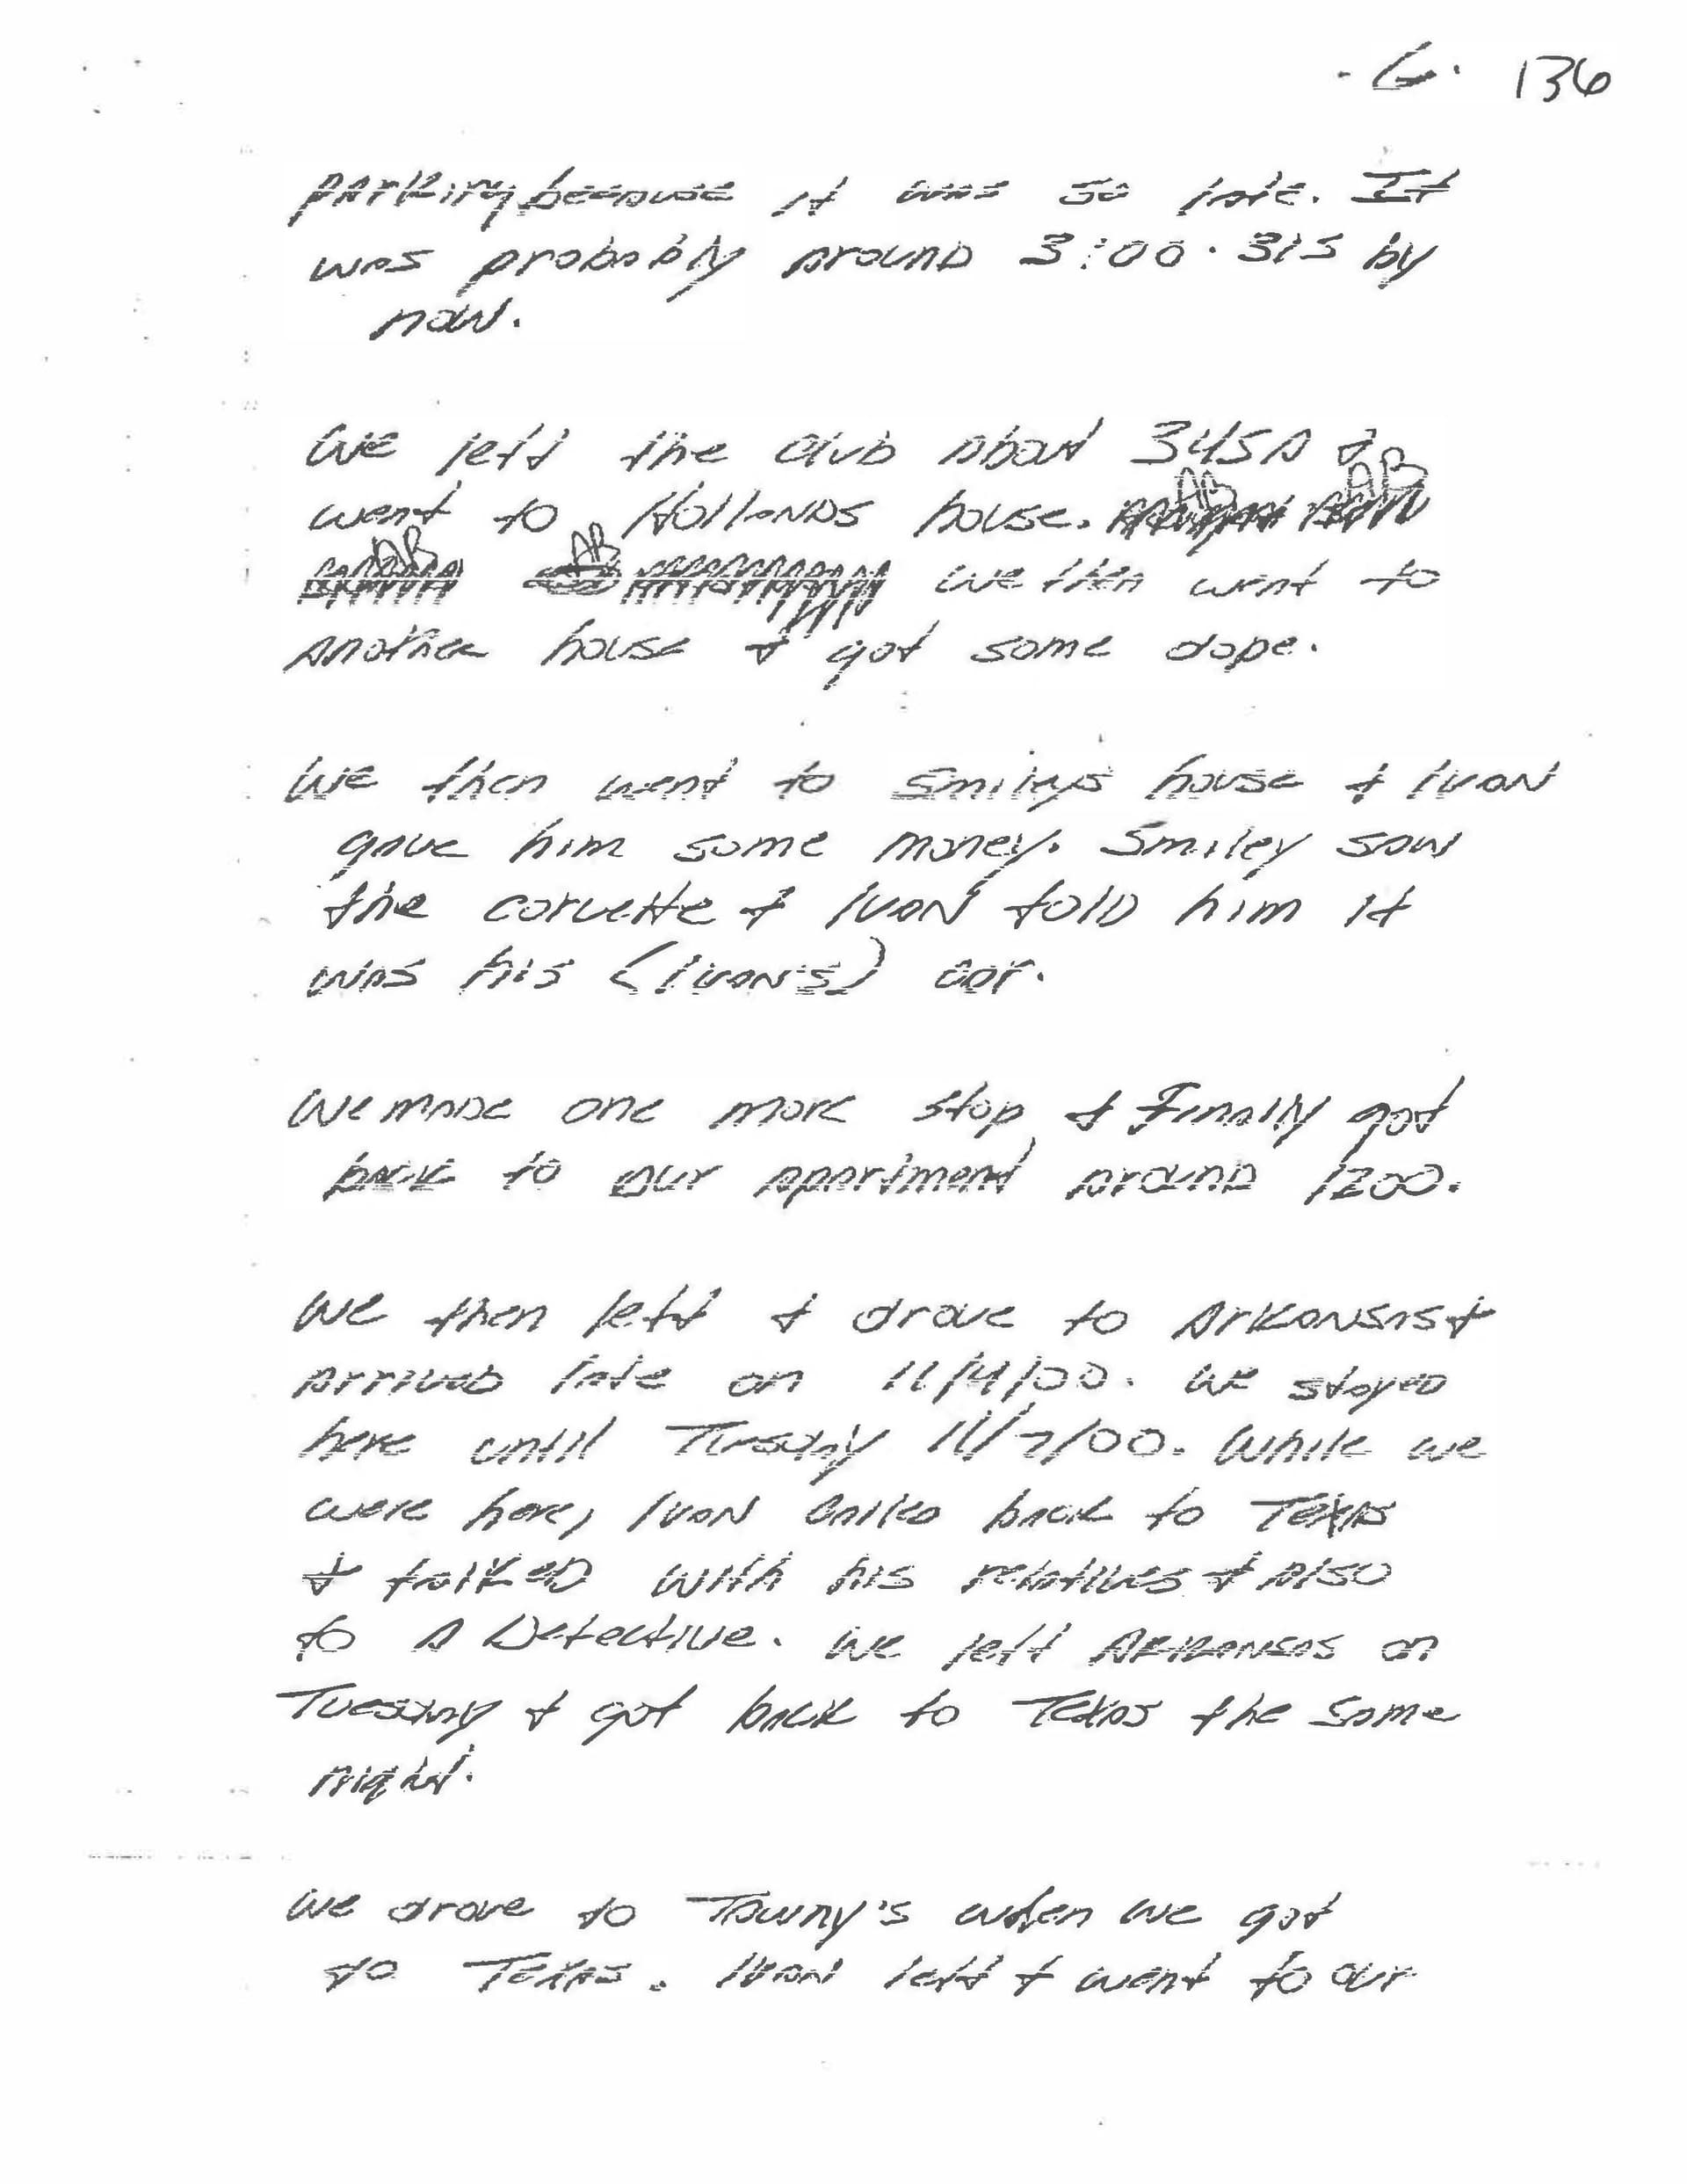 - 6 - 136
parking because it was so late. It
was probably around 3:00 - 315 by
now.
We left the club about 345A &
went to Hollands house. AB AB
AB AB we then went to
another house & got some dope.
We then went to Smileys house & Ivan
gave him some money. Smiley saw
the corvette & Ivan told him it
was his (Ivan's) car.
We made one more stop & Finally got
back to our apartment around 1200.
We then left & drove to Arkansas &
arrived late on 11/4/00. We stayed
here until Tuesday 11/7/00. While we
were here, Ivan called back to Texas
& talked with his relatives & also
to a Detective. We left Arkansas on
Tuesday & got back to Texas the same
night.
We drove to Tawny's when we got
to Texas. Ivan left & went to our